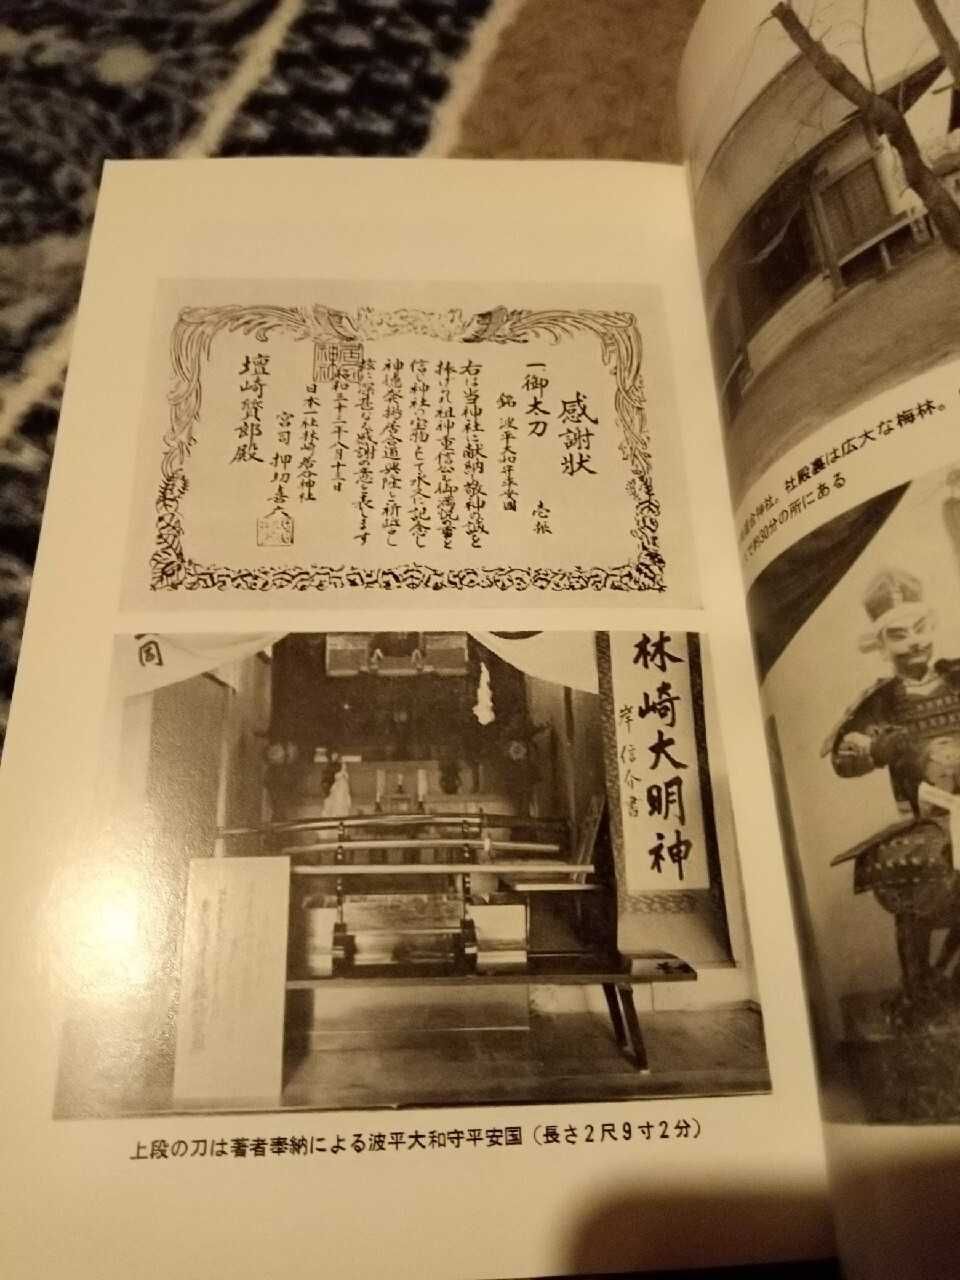 感謝状
一御太刀
銘 波平大和守平安国
壱振
右は当神社に献納敬神の誠を
捧げられ祖神重信公も御満悦の事と
信じ神社の宝物として永久に記念し
神徳発揚居合道興隆を祈念し
茲に深甚なる感謝の意を表します
昭和三十三年八月十三日
日本一社林崎居合神社
宮司 押切喜久
壇崎賛郎殿
林崎大明神
岸信介書
上段の刀は著者奉納による波平大和守平安国(長さ2尺9寸2分)
居合神社。社殿裏は広大な梅林。
て約30分の所にある